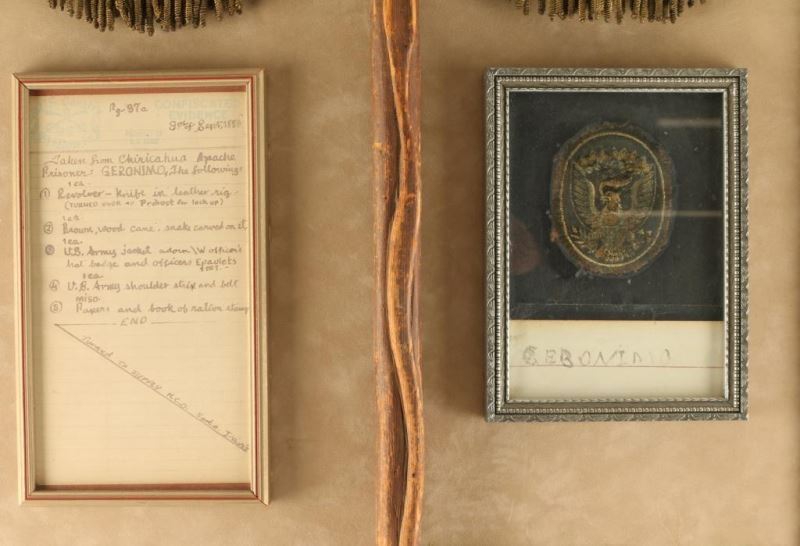 Pg-37a
CONFISCATED
EVIDENCE
3rd of Sept, 1886
Taken from Chiricahua Apache
Prisoner: GERONIMO, The following:
1 ea.
① Revolver - Knife in leather rig
(TURNED OVER to Provost for lock up)
1 ea.
② Brown, wood cane, snake carved on it
1 ea.
③ U.S. Army jacket adorn \W officer's
hat badge and officers Epaulets
1 set.-
1 ea.
④ U.S. Army shoulder strip and belt
misc.
⑤ Papers and book of ration stamp
END
Turned in
GERONIMO